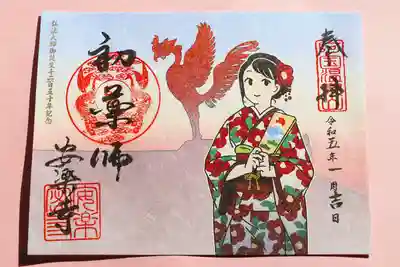 奉拝
令和五年一月吉日
初薬師
安楽寺
弘法大師御誕生千二百五十年記念